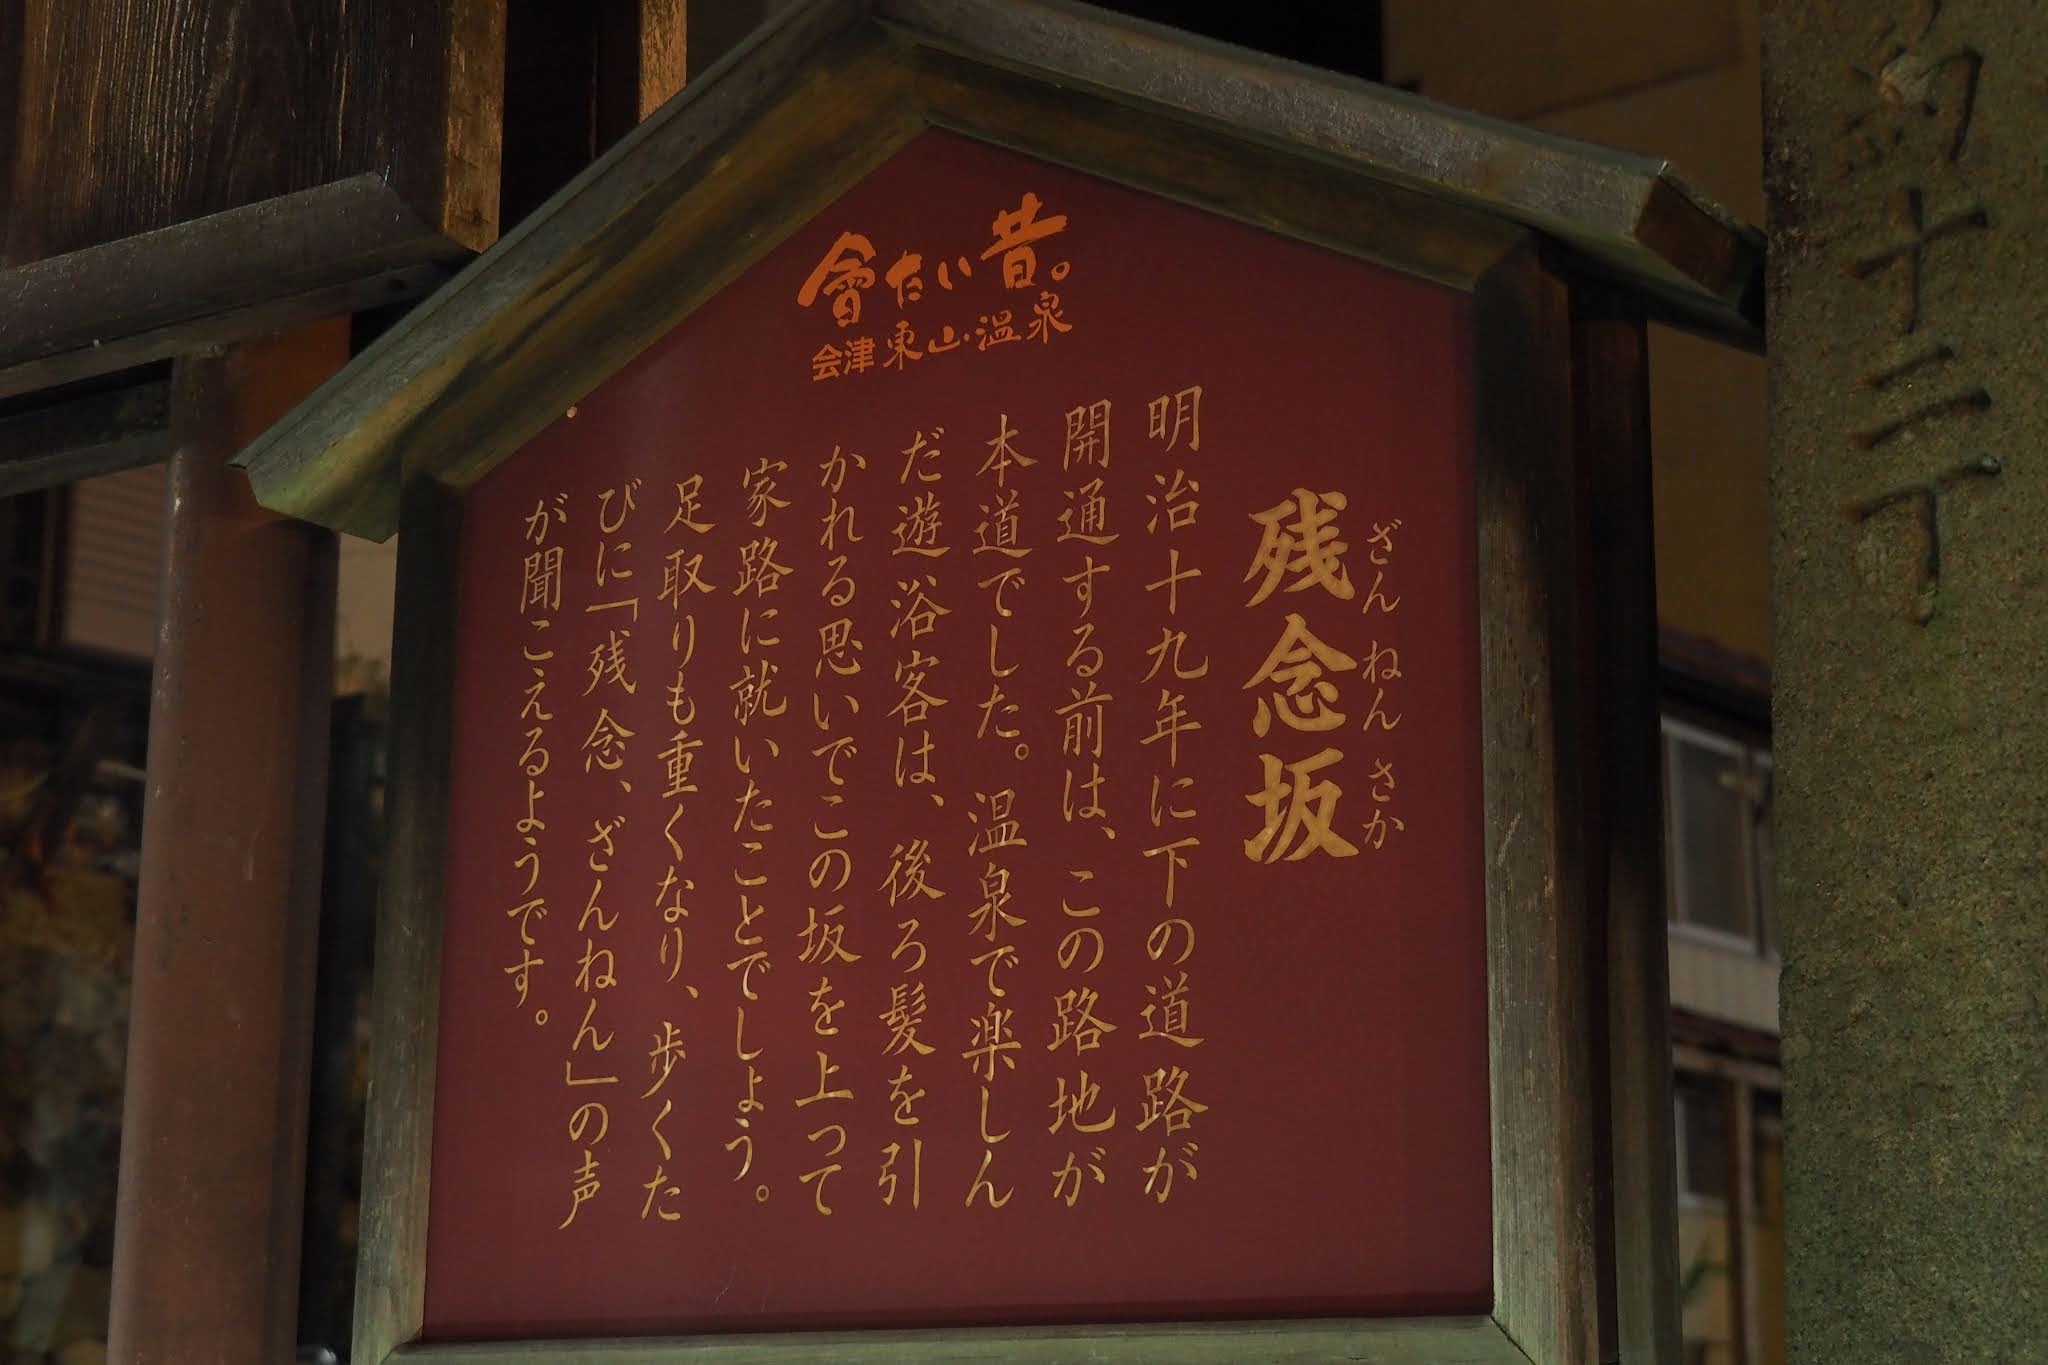 會たい昔。
会津東山温泉
残念坂
ざんねんさか
明治十九年に下の道路が
開通する前は、この路地が
本道でした。温泉で楽しん
だ遊浴客は、後ろ髪を引
かれる思いでこの坂を上って
家路に就いたことでしょう。
足取りも重くなり、歩くた
びに「残念、ざんねん」の声
が聞こえるようです。
十二丁